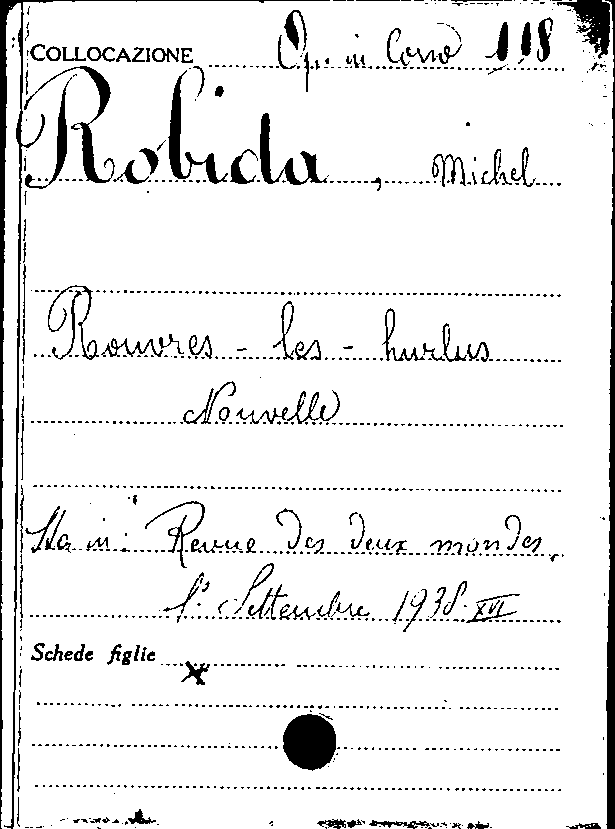 COLLOCAZIONE Op. in Corso 118
Robida, Michel
Rouvres - les - hurlus
Nouvelle
Sta in: Revue des deux mondes,
1° Settembre 1938. XVI
Schede figlie x